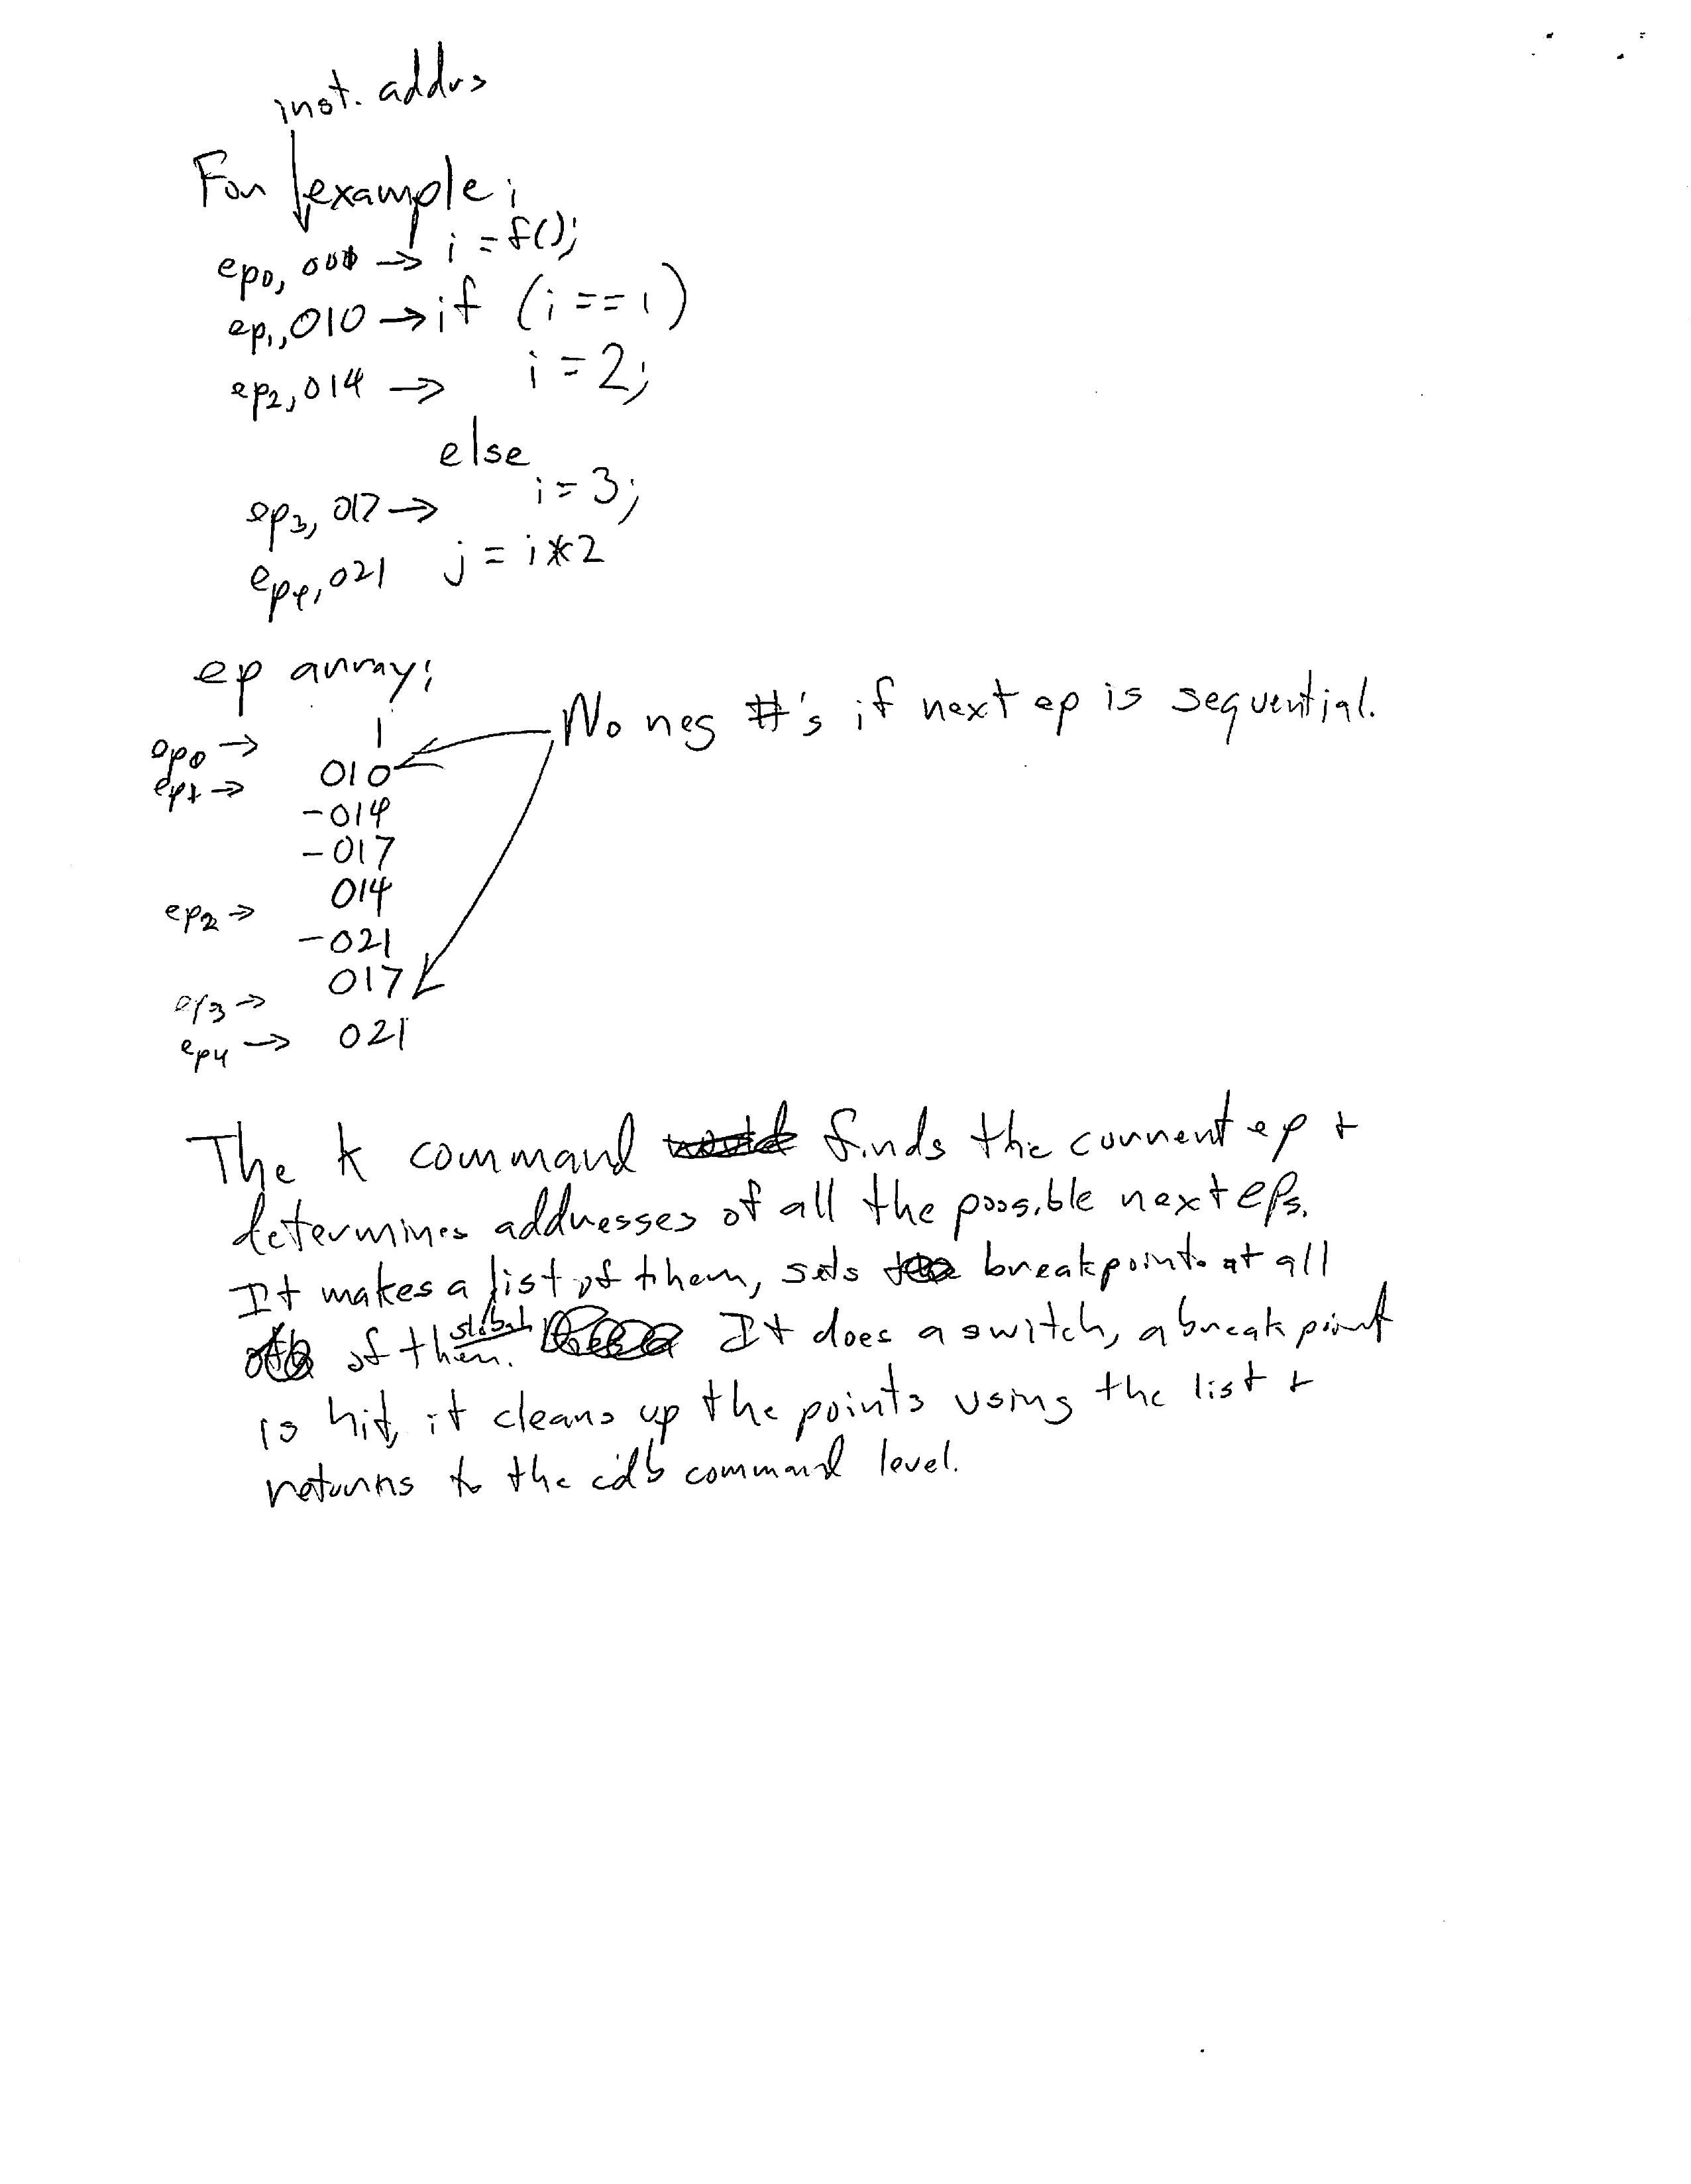 inst. addrs
For example:
ep0, 001 → i = f();
ep1, 010 → if (i == 1)
ep2, 014 → i = 2;
else
ep3, 017 → i = 3;
ep4, 021 j = i*2
ep array:
ep0 → 1 No neg #'s if next ep is sequential.
ep1 → 010
-014
-017
ep2 → 014
-021
ep3 → 017
ep4 → 021
The k command finds the current ep +
determines addresses of all the possible next eps.
It makes a global list of them, sets breakpoints at all
of them. It does a switch, a break point
is hit, it cleans up the points using the list +
returns to the cdb command level.